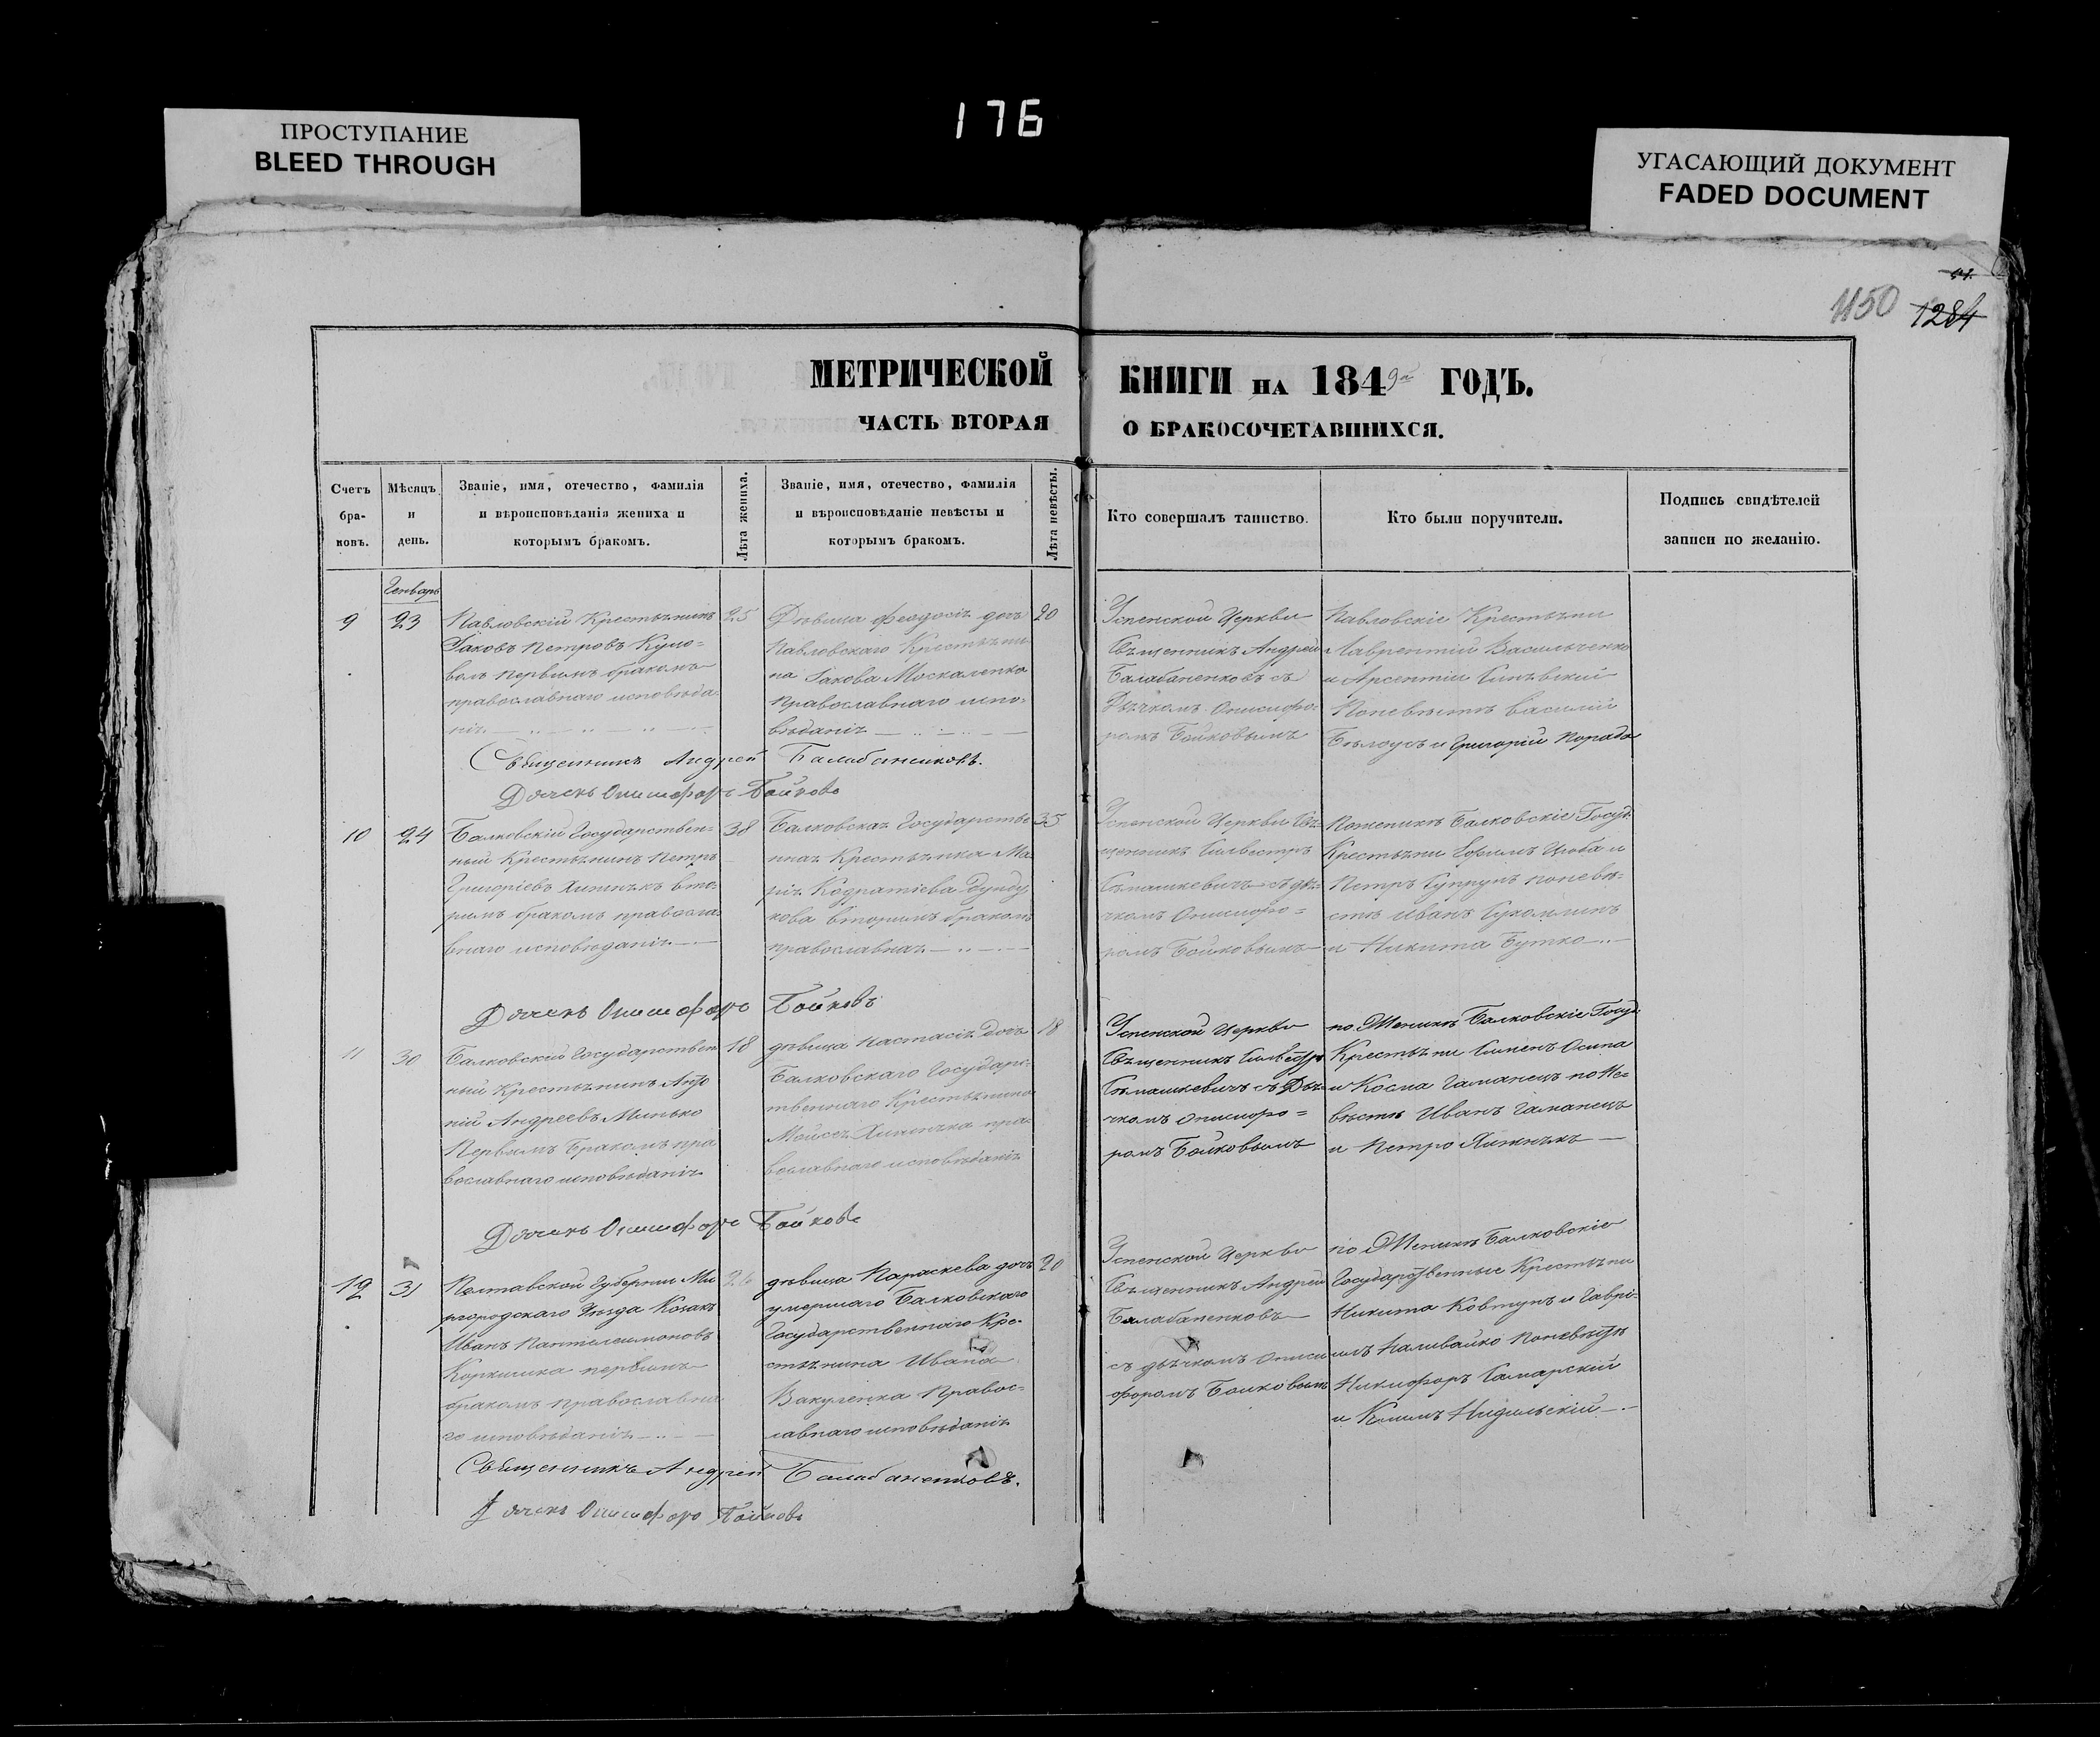 176
ПРОСТУПАНИЕ
BLEED THROUGH
УГАСАЮЩИЙ ДОКУМЕНТ
FADED DOCUMENT
1150 1284
МЕТРИЧЕСКОЙ КНИГИ НА 1849 ГОДЪ.
ЧАСТЬ ВТОРАЯ О БРАКОСОЧЕТАВШИХСЯ.
Счетъ бра- ковъ.
Мѣсяцъ и день.
Званіе, имя, отечество, фамилія
и вѣроисповѣданія жениха и
которымъ бракомъ.
Лѣта жениха.
Званіе, имя, отечество, фамилія
и вѣроисповѣданіе невѣсты и
которымъ бракомъ.
Лѣта невѣсты.
Кто совершалъ таинство.
Кто были поручители.
Подпись свидѣтелей
записи по желанію.
Генварь
9
23
Павловскій Крестьянинъ
Іаковъ Петровъ
первымъ бракомъ
православнаго исповѣда
нія
25
Дѣвица Феодосія дочь
Павловскаго Крестьяни
на Іакова Москаленка
православнаго испо-
вѣданія
20
Успенской Церкви
Священникъ Андрей
Балабаненковъ съ
Дьячкомъ Онисифо-
ромъ Бойковымъ
Павловскіе Крестьяни
Лаврентій Васильченко
и Арсентій
Поневѣстѣ Василій
Бѣлоусъ и Григорій
Священникъ Андрей Балабаненковъ.
Дячекъ Онисифоръ Бойковъ
10
24
Балковскій Государствен-
ный Крестьянинъ Петръ
Григоріевъ Хижнякъ вто-
рымъ бракомъ правосла-
внаго исповѣданія
38
Балковская Государстве
нная Крестьянка Ма
рія Кодратіева
кова вторымъ бракомъ
православная
35
Успенской Церкви Свя-
щенникъ Сильвестръ
Сѣмашкевичъ съ дья-
чкомъ Онисифо=
ромъ Бойковымъ
Поженихѣ Балковскіе Госуд:
Крестьяни Ефимъ Цюба и
Петръ Супрунъ поневѣ-
стѣ Иванъ Сукомлинъ
и Никита Бутко
Дячекъ Онисифоръ Бойковъ
11
30
Балковскій Государствен
ный Крестьянинъ
ній Андреевъ Минько
Первымъ Бракомъ пра
вославнаго исповѣданія
18
дѣвица Настасія дочь
Балковскаго Государс-
твеннаго Крестьянина
Мойсея Хижняка пра-
вославнаго исповѣданія
18
Успенской Церкви
Священникъ Сильвестръ
Сѣмашкевичъ съ Дья-
чкомъ Онисифо=
ромъ Бойковымъ
по Женихѣ Балковскіе Госуд:
Крестьяни Сименъ Осипа
и Косма Гаманецъ по Не-
вѣстѣ Иванъ Гаманецъ
и Петро Хижнякъ
Дячекъ Онисифоръ Бойковъ
12
31
Полтавской Губерніи Ми
ргородскаго Уѣзда Козакъ
Иванъ Пантелеимоновъ
первымъ
бракомъ православна
го исповѣданія
дѣвица Параскева дочь
умершаго Балковскаго
Государственнаго Кре-
стьянина Ивана
Вакуленка Правос-
лавнаго исповѣданія
20
Успенской Церкви
Священникъ Андрей
Балабаненковъ
съ дьячкомъ Ониси
форомъ Бойковымъ
по Женихѣ Балковскіе
Государственные Крестьяни
Никита Ковтунъ и Гаврі-
илъ Наливайко Поневѣстѣ
Никифоръ Самарскій
и Климъ Нидильскій
Священникъ Андрей Балабаненковъ.
Дячекъ Онисифоръ Бойковъ